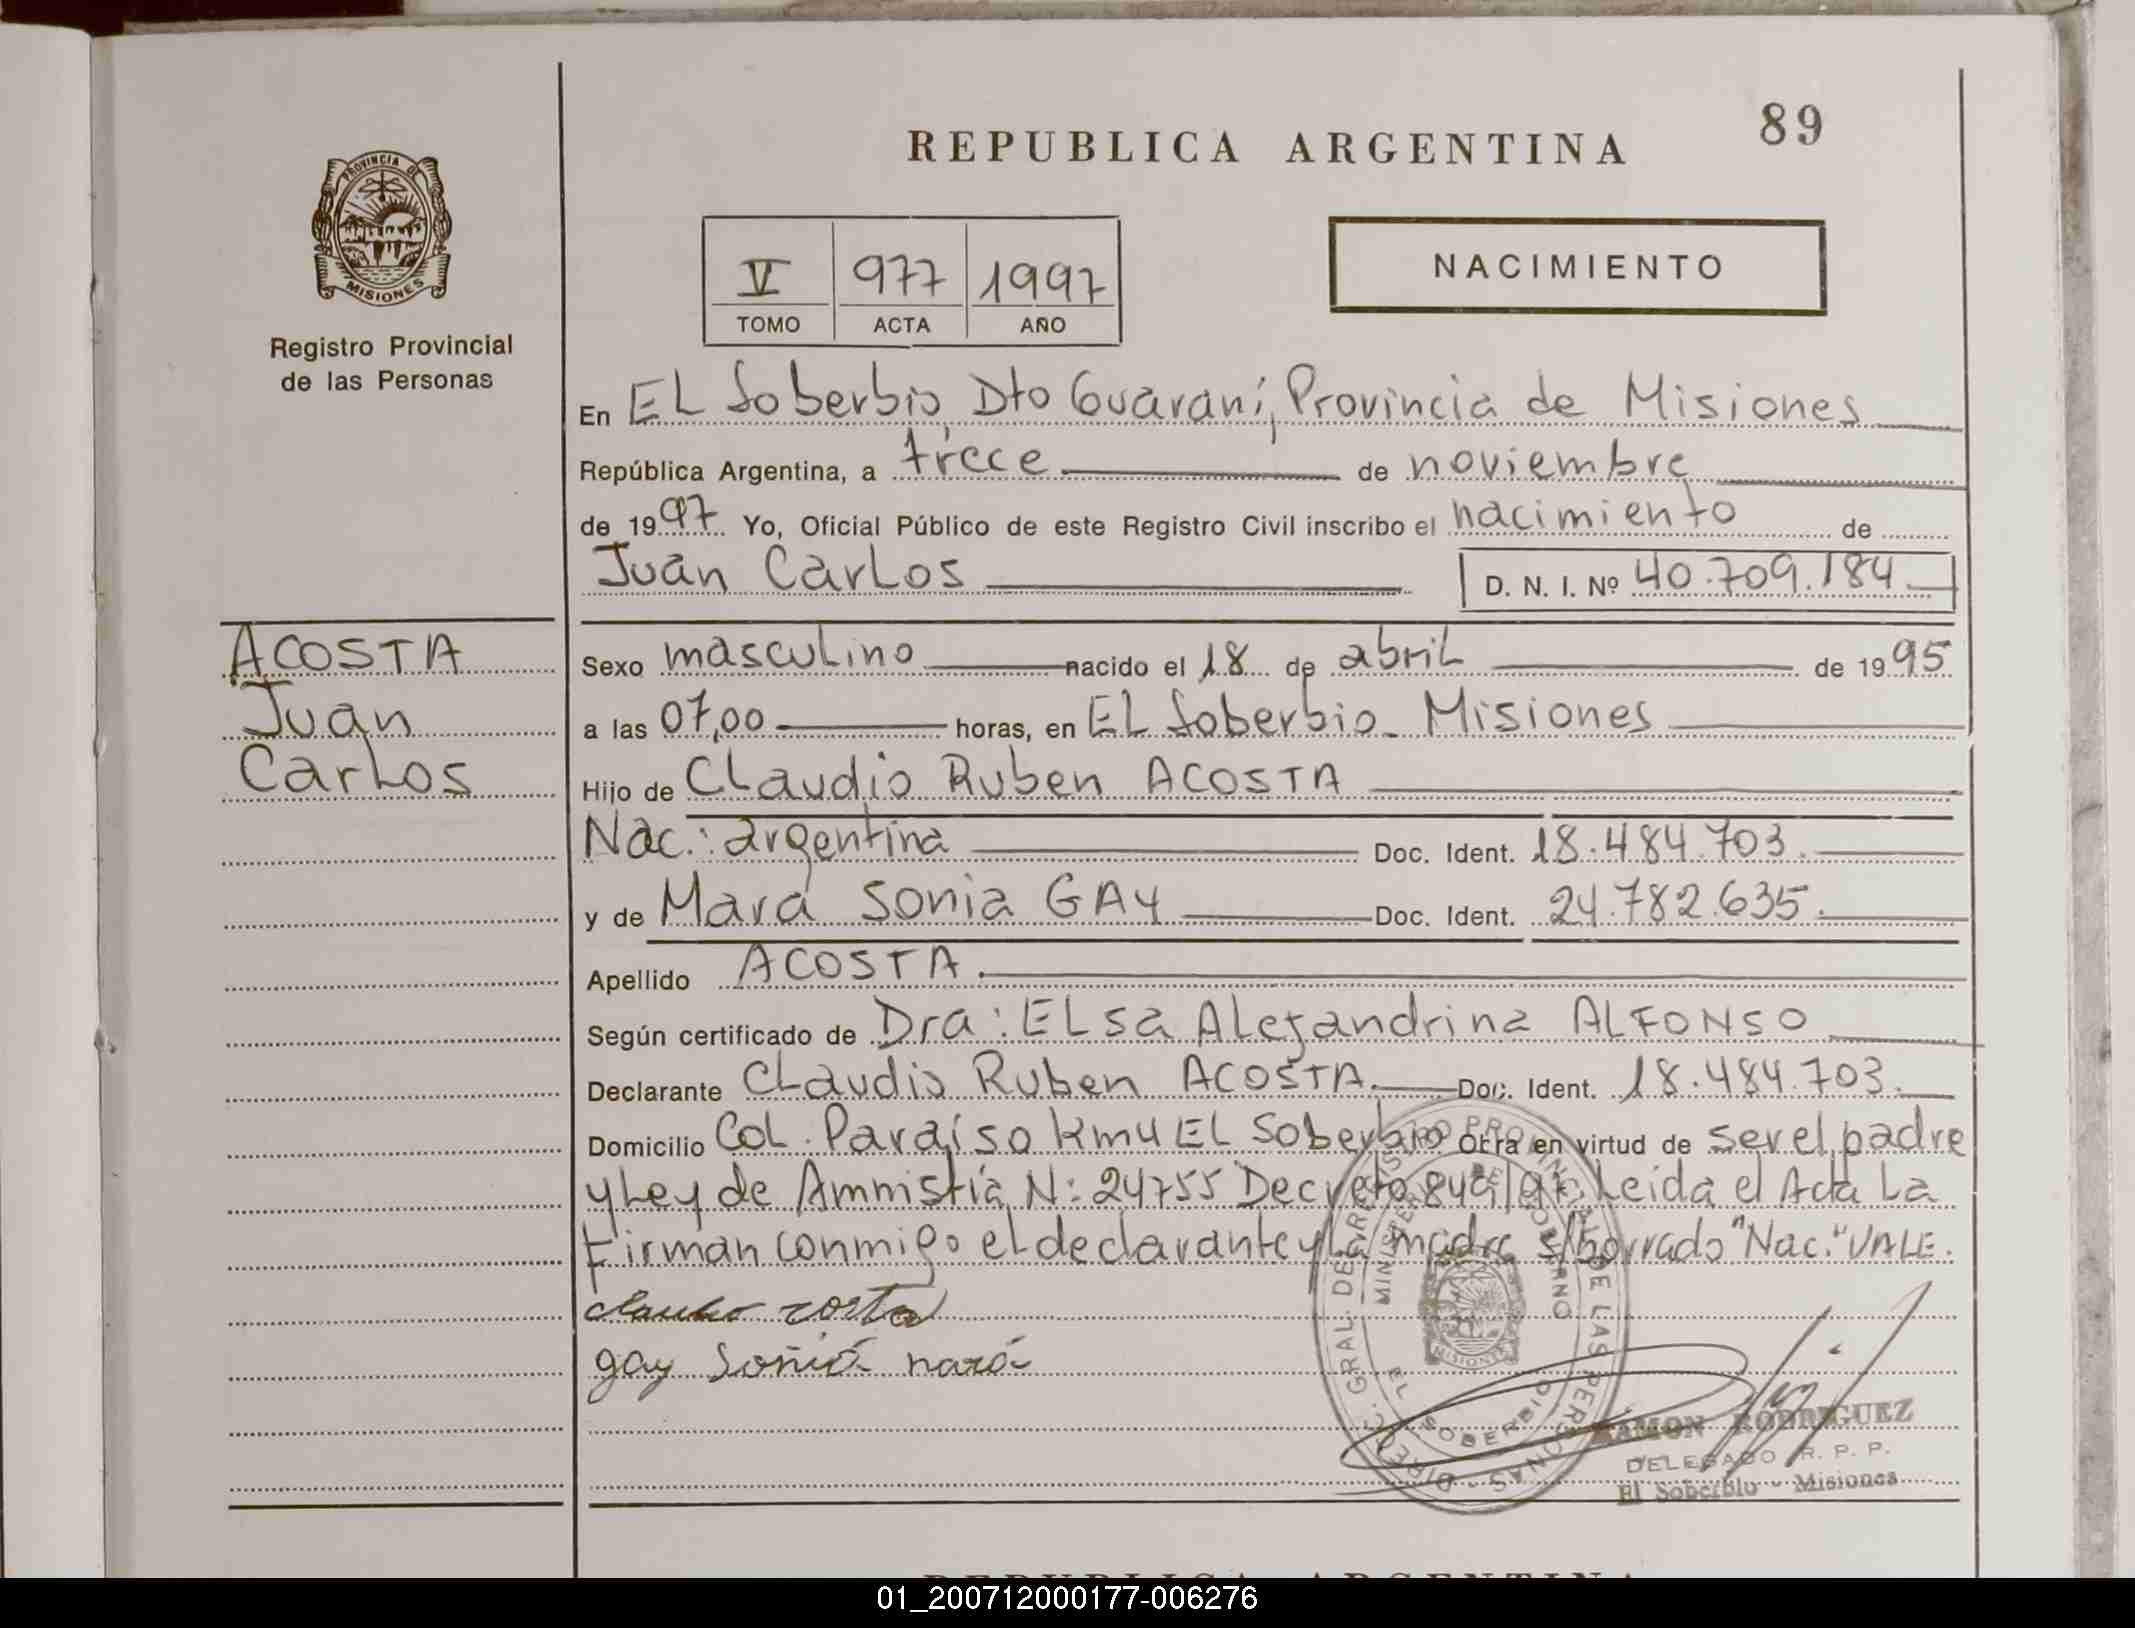 REPUBLICA ARGENTINA
89
PROVINCIA DE
MISIONES
Registro Provincial
de las Personas
V 977 1997
TOMO ACTA AÑO
NACIMIENTO
En EL Soberbio, Dto Guaraní, Provincia de Misiones
República Argentina, a trece de noviembre
de 1997 Yo, Oficial Público de este Registro Civil inscribo el nacimiento de
Juan Carlos D. N. I. Nº 40.709.184
ACOSTA
Juan
Carlos
Sexo masculino nacido el 18 de abril de 1995
a las 07,00 horas, en EL Soberbio - Misiones
Hijo de Claudio Ruben ACOSTA
Nac.: argentina Doc. Ident. 18.484.703.
y de Mará Sonia GAY Doc. Ident. 24.782.635.
Apellido ACOSTA.
Según certificado de Dra: ELsa Alejandrina ALFONSO
Declarante Claudio Ruben ACOSTA. Doc. Ident. 18.484.703.
Domicilio Col. Paraíso Km4 EL Soberbio Orra en virtud de ser el padre
y Ley de Amnistía N: 24755 Decreto 849/97. Leida el Acta La
Firman conmigo el declarante y La madre s/borrado "Nac." VALE.
gay Soniá mará
DIREC. GRAL. DE REGISTRO PROVINCIAL DE LAS PERSONAS -
MINISTERIO DE GOBIERNO
EL SOBERBIO
MISIONES
RAMON RODRIGUEZ
DELEGADO R. P. P.
El Soberbio - Misiones
REPUBLICA ARGENTINA
01_200712000177-006276